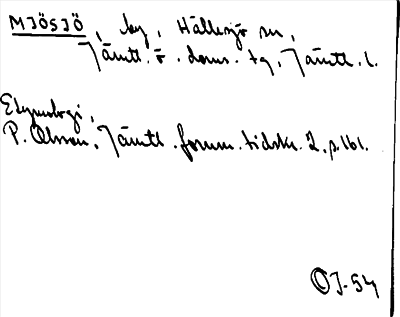 MJÖSJÖ, by, Hällesjö sn,
Jämtl. ö. doms. tg, Jämtl. l.
Etymologi,
P. Olsson, Jämtl. fornm. tidskr. 2, p. 161.
OJ-54